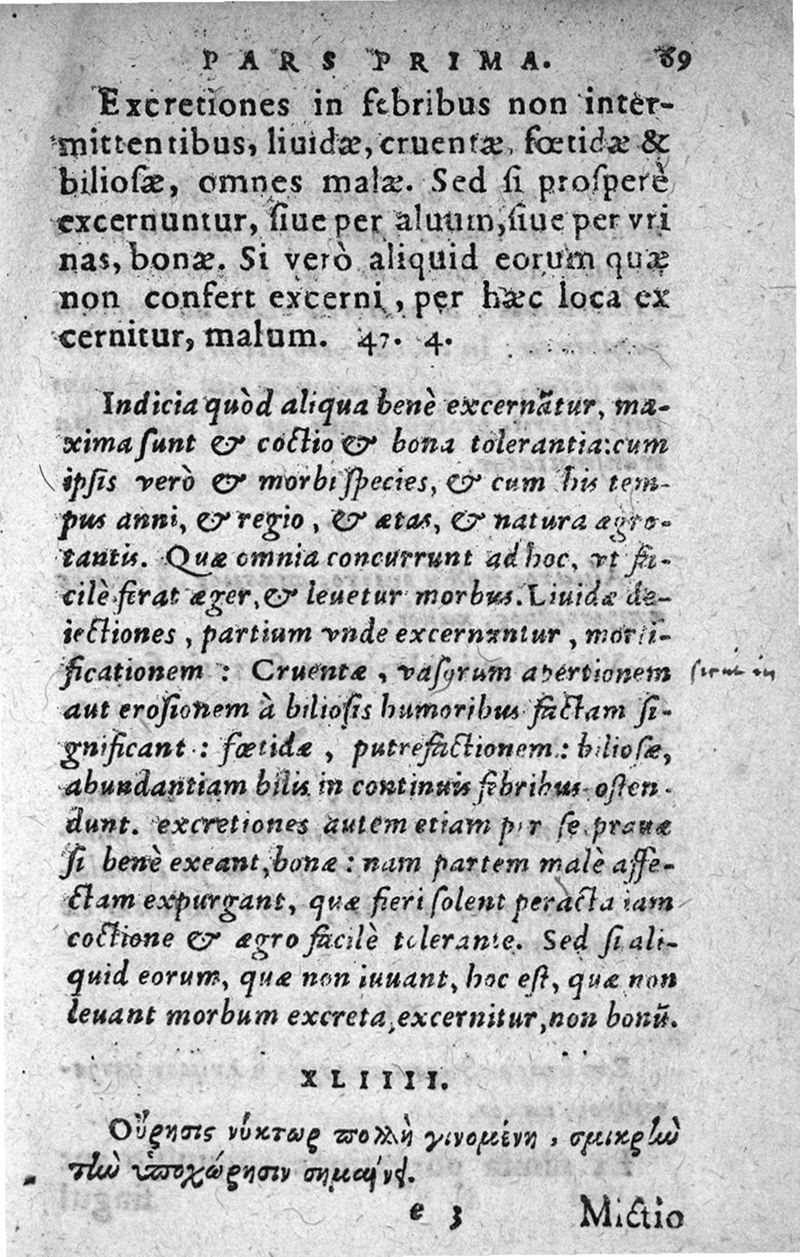 PARS PRIMA. 69
Excretiones in febribus non inter-
mittentibus, liuidæ, cruentæ, fœtidæ &
biliosæ, omnes malæ. Sed si prosperè
excernuntur, siue per aluum, siue per vri
nas, bonæ. Si verò aliquid eorum quæ
non confert excerni, per hæc loca ex
cernitur, malum. 47. 4.
Indicia quòd aliqua benè excernãtur, ma-
xima sunt & coctio & bona tolerantia: cum
ipsis verò & morbi species, & cum his tem-
pus anni, & regio, & ætas, & natura ægro-
tantis. Quæ omnia concurrunt ad hoc, vt fa-
cilè ferat æger, & leuetur morbus. Liuidæ de-
iectiones, partium vnde excernuntur, morti-
ficationem: Cruentæ, vasorum apertionem
aut erosionem à biliosis humoribus factam si-
gnificant: fœtidæ, putrefactionem: biliosæ,
abundantiam bilis in continuis febribus osten-
dunt. excretiones autem etiam per se prauæ
si benè exeant, bonæ: nam partem malè affe-
ctam expurgant, quæ fieri solent peracta iam
coctione & ægro facilè tolerante. Sed si ali-
quid eorum, quæ non iuuant, hoc est, quæ non
leuant morbum excreta, excernitur, non bonũ.
XLIIII.
Οὔρησις νύκτωρ πολλὴ γινομένη, σμικρὴν
τὴν ὑποχώρησιν σημαίνει.
e 3 Mictio